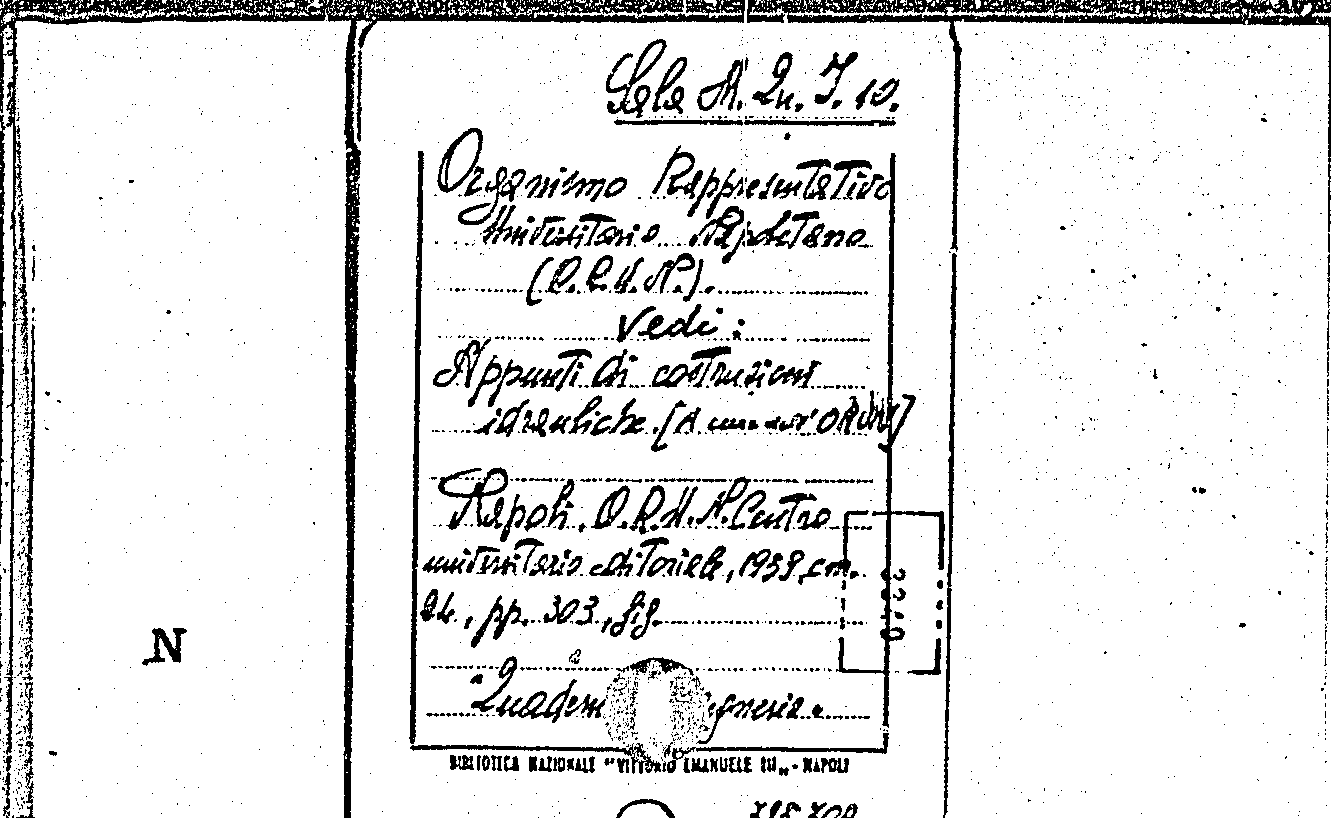 Sala A. Qu. I. 10.
Organismo Rappresentativo
Universitario Napoletano
(O.R.U.N.).
Vedi:
Appunti di costruzioni
idrauliche. [A cura dell' ORUN]
Napoli, O.R.U.N. Centro
universitario editoriale, 1958, cm.
24, pp. 303, fig.
"Quaderni
N
BIBLIOTECA NAZIONALE "VITTORIO EMANUELE III„ - NAPOLI